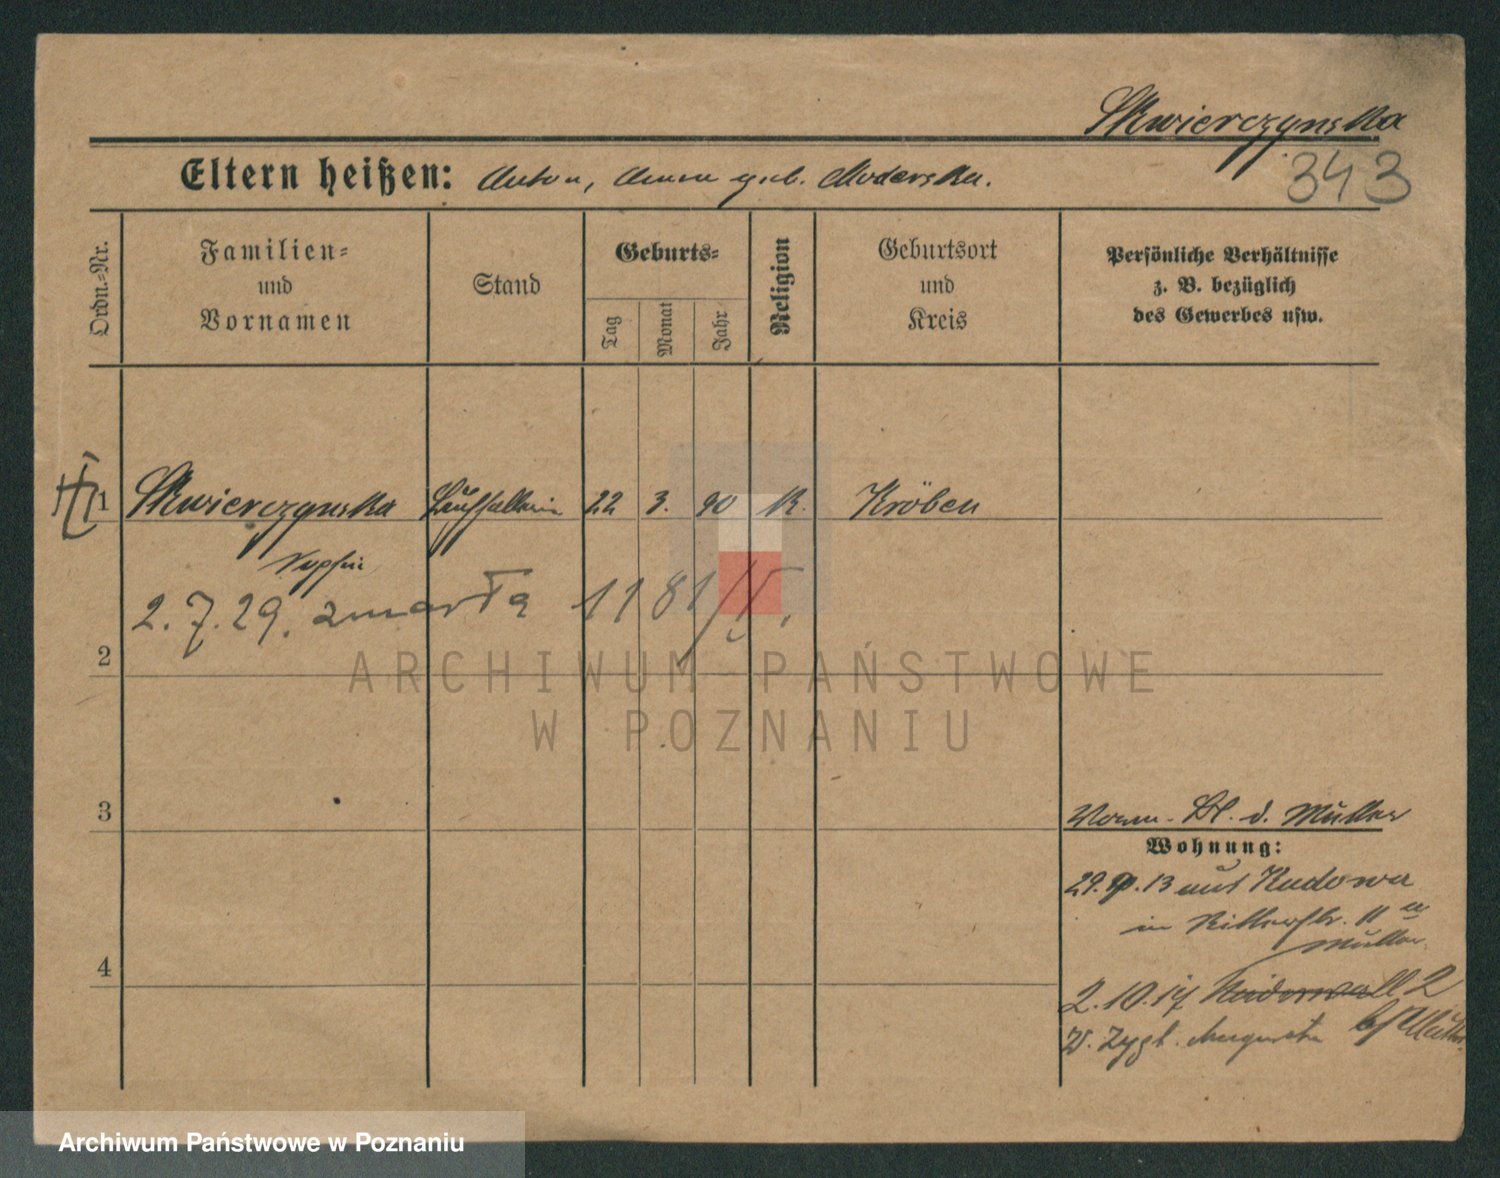 Skwierczynska
343
Eltern heißen: Anton, Anna geb. Moderska.
Ordn.-Nr.
Familien-
und
Vornamen
Stand
Geburts-
Tag
Monat
Jahr
Religion
Geburtsort
und
Kreis
Persönliche Verhältnisse
z. B. bezüglich
des Gewerbes usw.
1 Skwierczynska 22 3. 90 K. Kröben
Sophie
2.7.29. zmarła 1181/V.
2
3
4
Vorm. Bl. d. Müller
Wohnung:
29.9.13 aus Kudowa
in Ritterstr. 11 a
Müller
2.10.17 2
W. Zygt. Augusta
ARCHIWUM PAŃSTWOWE
W POZNANIU
Archiwum Państwowe w Poznaniu